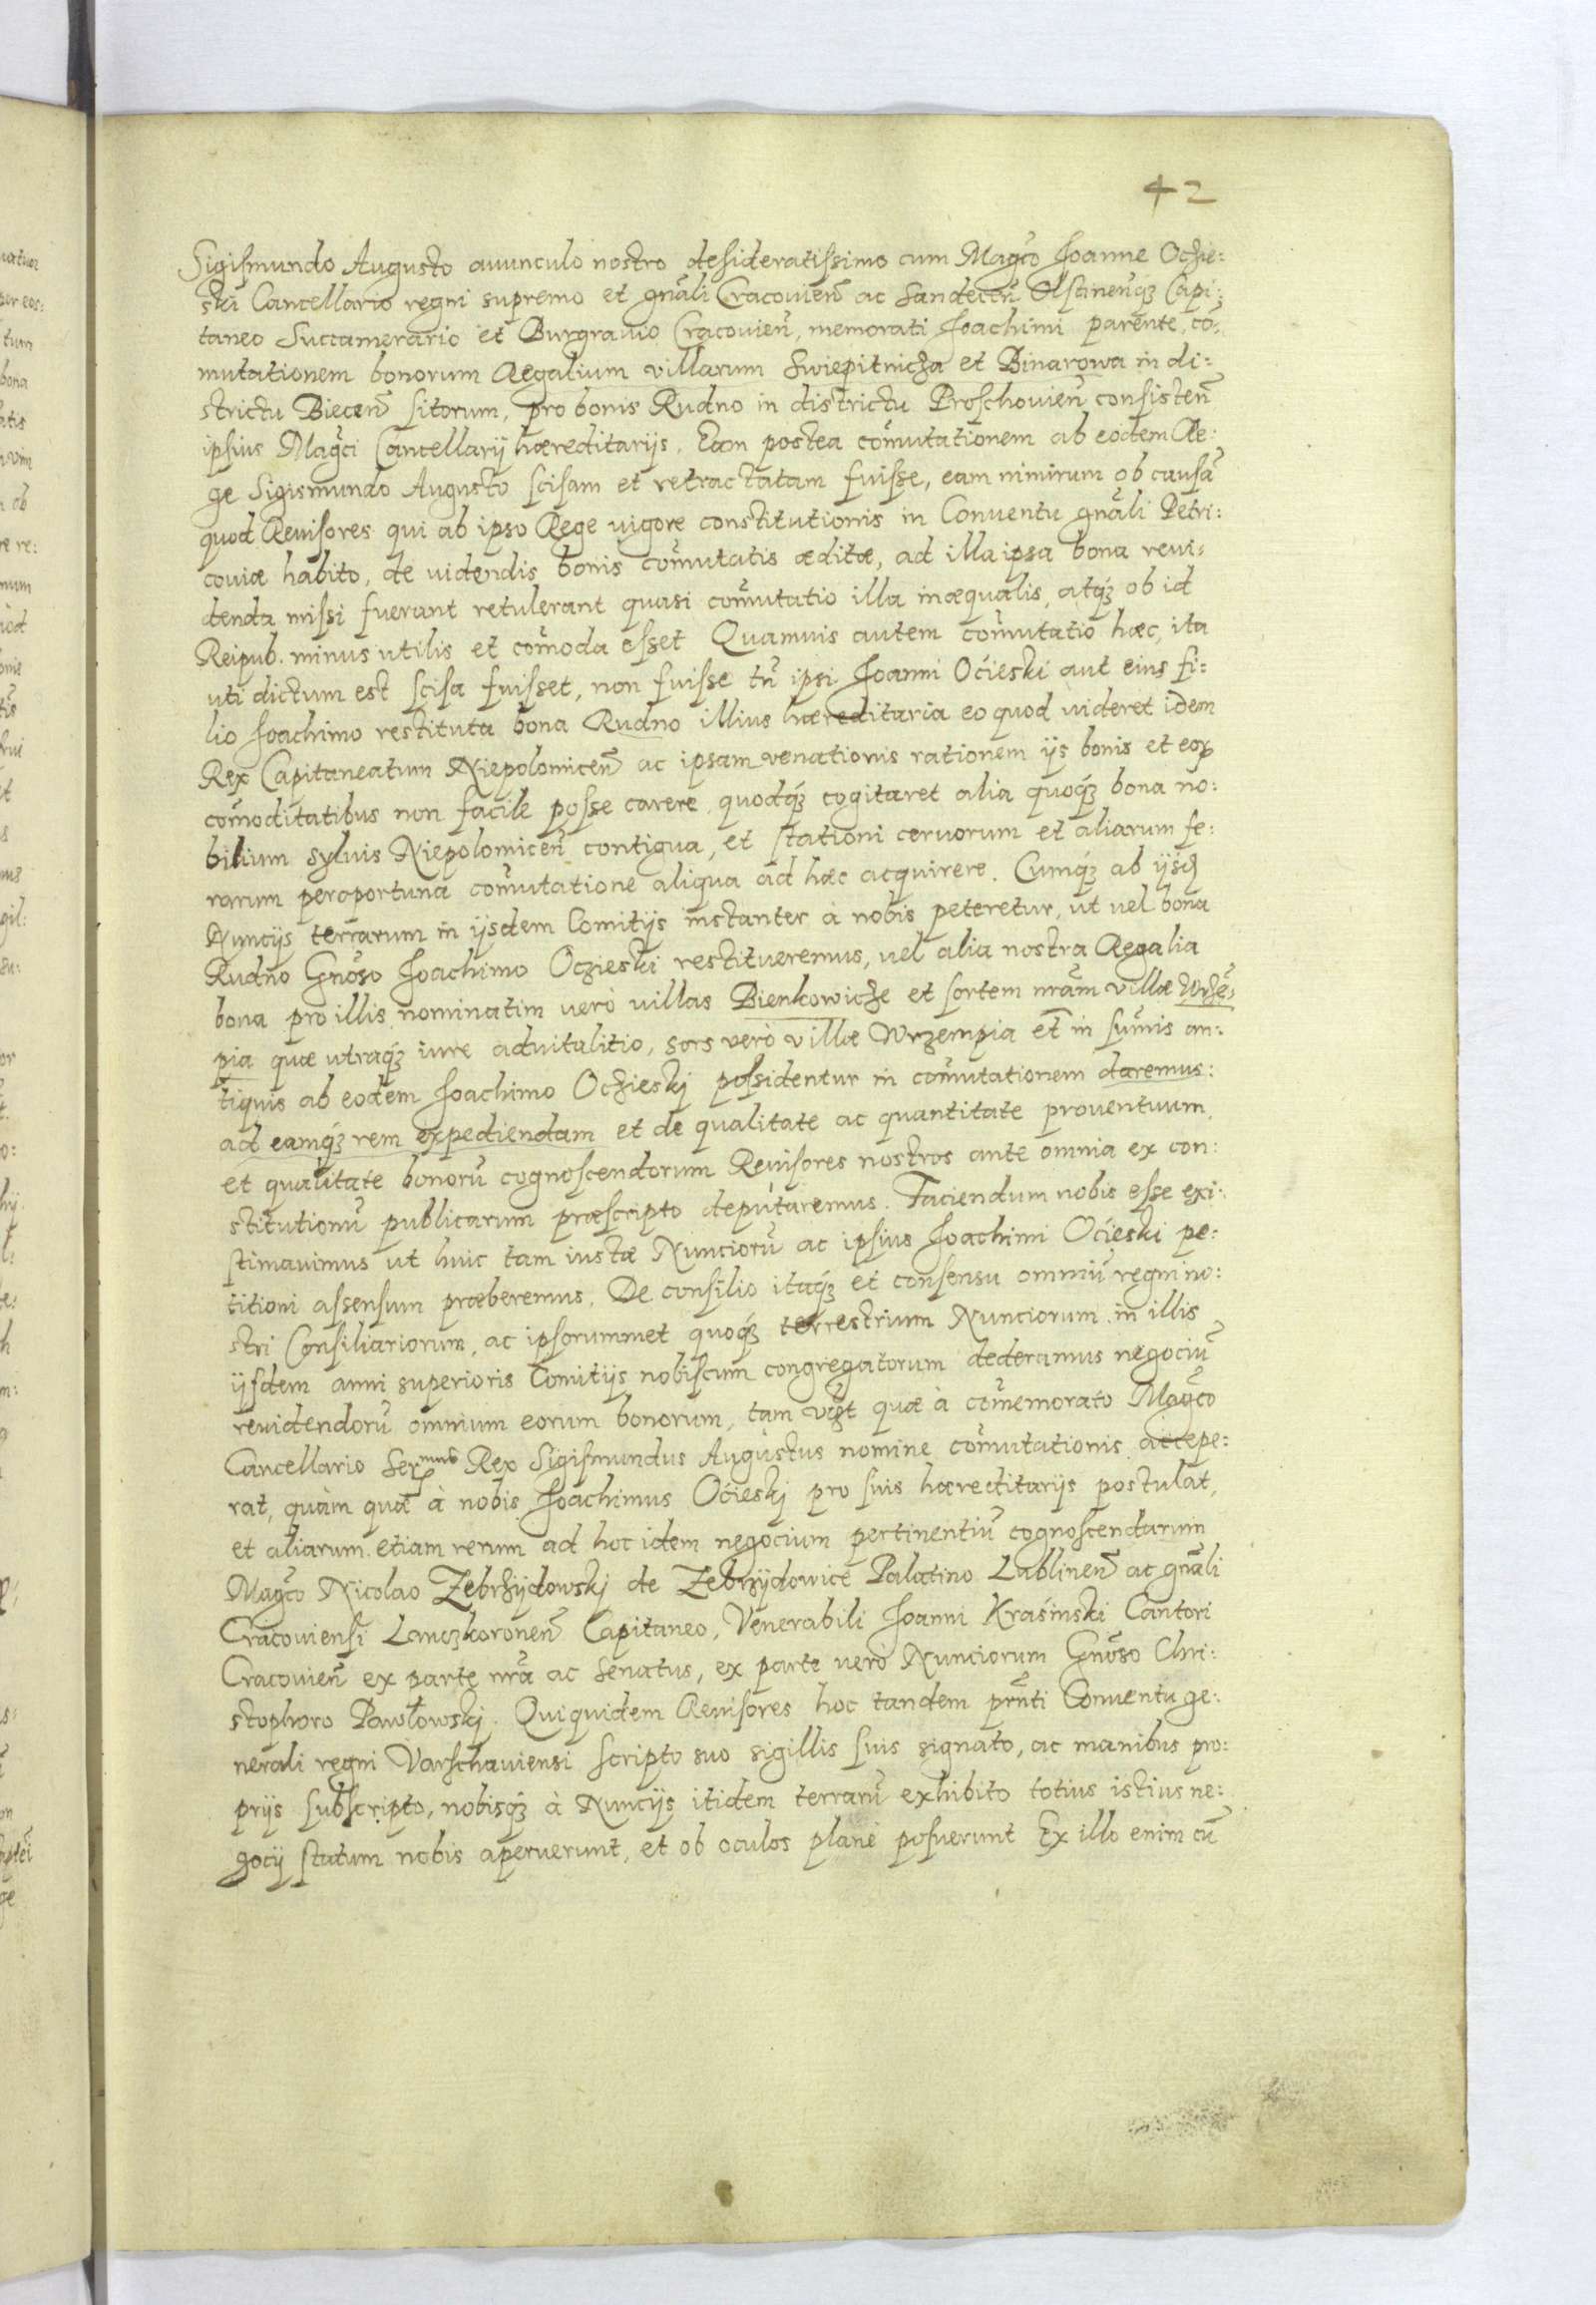 42
Sigismundo Augusto auunculo nostro desideratissimo cum Mag̃co Joanne Oczie:
ski Cancellario regni supremo et gñali Cracouieñ ac Sandeceñ Olstineñq; Capi:
taneo Succamerario et Burgrauio Cracouieñ, memorati Joachimi parente, cõ:
mutationem bonorum Regalium villarum Swiepitnicza et Binarowa in di:
strictu Bieceñ sitorum, pro bonis Rudno in districtu Proschouieñ consisteñ
ipsius Mag̃ci Cancellarij hæreditarijs. Eam postea com̃utationem ab eodem Re:
ge Sigismundo Augusto scisam et retractatam fuisse, eam nimirum ob causã
quod Reuisores qui ab ipso Rege uigore constitutionis in Conuentu gñali Petri:
couiæ habito, de uidendis bonis com̃utatis æditæ, ad illa ipsa bona reui:
denda missi fuerant retulerant quasi com̃utatio illa inæqualis, atq; ob id
Reipub. minus utilis et com̃oda esset Quamuis autem com̃utatio hæc, ita
uti dictum est scisa fuisset, non fuisse tñ ipsi Joanni Ocieski aut eius fi:
lio Joachimo restituta bona Rudno illius hæreditaria eo quod uideret idem
Rex Capitaneatum Niepolomiceñ ac ipsam venationis rationem ijs bonis et eoꝝ
com̃oditatibus non facile posse carere, quodq; cogitaret alia quoq; bona no:
bilium syluis Niepolomiceñ contigua, et stationi ceruorum et aliarum fe:
rarum peroportuna com̃utatione aliqua ad hæc acquirere. Cumq; ab ijsd
Nuncijs terrarum in ijsdem Comitijs instanter à nobis peteretur, ut uel bona
Rudno Gnõso Joachimo Oczieski restitueremus, uel alia nostra Regalia
bona pro illis nominatim uerò uillas Bienkowicze et sortem nr̃am villæ Wrzẽ:
pia quæ utraq; iure aduitalitio, sors verò villæ Wrzempia et̃ in sum̃is an:
tiquis ab eodem Joachimo Oczieskj possidentur in com̃utationem daremus:
ad eamq; rem expediendam et de qualitate ac quantitate prouentuum,
et qualitate bonorũ cognoscendorum Reuisores nostros ante omnia ex con:
stitutionũ publicarum præscripto deputaremus. Faciendum nobis esse exi:
stimauimus ut huic tam iustæ Nunciorũ ac ipsius Joachimi Ocieski pe:
titioni assensum præberemus. De consilio itaq; et consensu omniũ regni no:
stri Consiliariorum, ac ipsorummet quoq; terrestrium Nunciorum in illis
ijsdem anni superioris Comitijs nobiscum congregatorum dederamus negociũ
reuidendorũ omnium eorum bonorum, tam vz̃t quæ à com̃emorato Mag̃co
Cancellario Sermus Rex Sigismundus Augustus nomine com̃utationis accepe:
rat, quàm quæ à nobis Joachimus Ocieskj pro suis hæreditarijs postulat,
et aliarum etiam rerum ad hoc idem negocium pertinentiũ cognoscendarum
Mag̃co Nicolao Zebrzijdowskj de Zebrzijdowice Palatino Lublineñ ac gñali
Cracouiensi Lanczkoroneñ Capitaneo, Venerabili Joanni Krasinski Cantori
Cracouieñ ex parte nr̃a ac Senatus, ex parte uerò Nunciorum Gnõso Chri:
stophoro Pawłowskj. Quiquidem Reuisores hoc tandem prñti Conuentu ge:
nerali regni Varschauiensi scripto suo sigillis suis signato, ac manibus pro:
prijs subscripto, nobisq; à Nuncijs itidem terrarũ exhibito totius istius ne:
gocij statum nobis aperuerunt, et ob oculos planè posuerunt Ex illo enim cũ